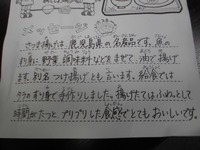 メッセージ
さつま揚げは、鹿児島県の名産品です。魚の
すり身に野菜、調味料などをまぜて、油で揚げ
ます。別名つけ揚げとも言います。給食では
手作りしました。揚げたては
時間がたつと、プリプリした食感でとてもおいしいです。